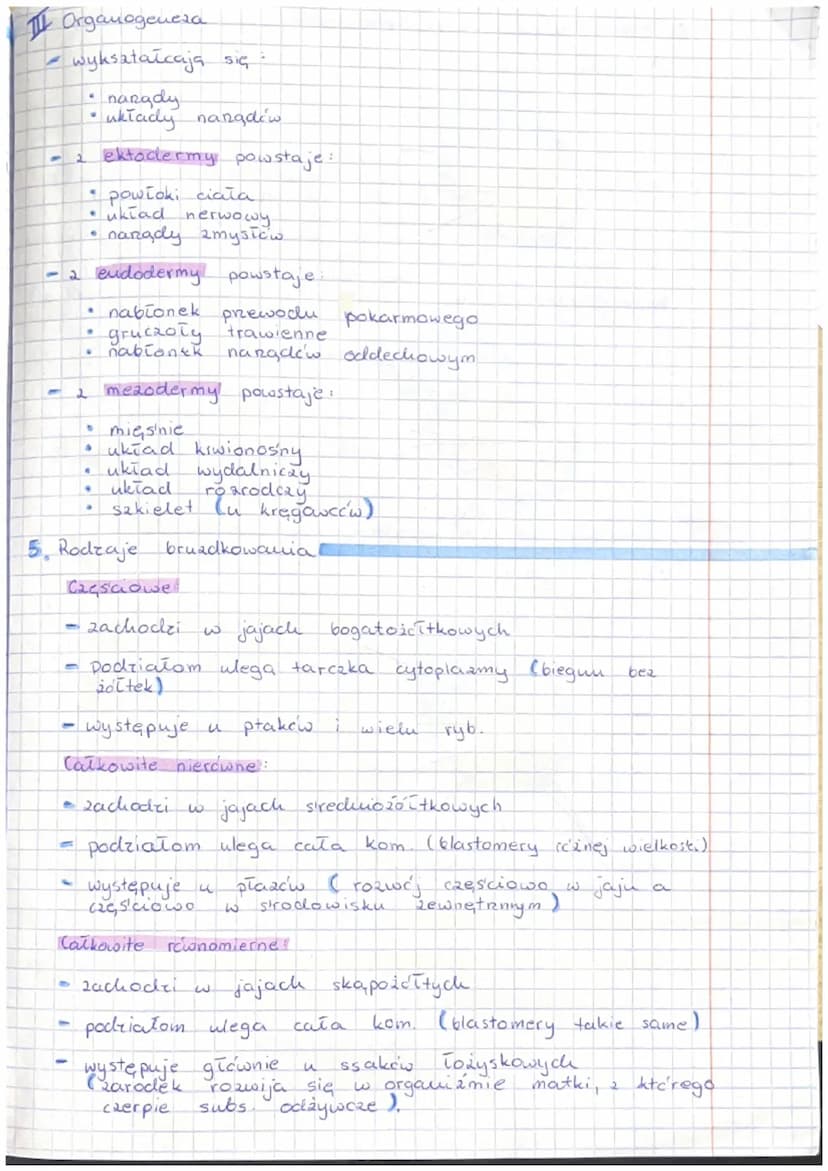 III Organogeneza
- wykształcają się:
• narządy
• układy narządów
- z ektodermy powstaje:
• powłoki ciała
• układ nerwowy
• narządy zmysłów
- z endodermy powstaje:
• nabłonek przewodu pokarmowego
• gruczoły trawienne
• nabłonek narządów oddechowym
- z mezodermy powstaje:
• mięśnie
• układ krwionośny
• układ wydalniczy
• układ rozrodczy
• szkielet (u kręgowców)
5. Rodzaje bruzdkowania
Częściowe:
- zachodzi w jajach bogatożółtkowych
- podziałom ulega tarczka cytoplazmy (biegun bez
żółtek)
- występuje u ptaków i wielu ryb.
Całkowite nierówne:
- zachodzi w jajach średniożółtkowych
- podziałom ulega cała kom. (blastomery różnej wielkości)
- występuje u płazów (rozwój częściowo w jaju a
częściowo w środowisku zewnętrznym)
Całkowite równomierne:
- zachodzi w jajach skąpożółtych
- podziałom ulega cała kom. (blastomery takie same)
- występuje głównie u ssaków łożyskowych
(zarodek rozwija się w organiźmie matki, z którego
czerpie subs. odżywcze).